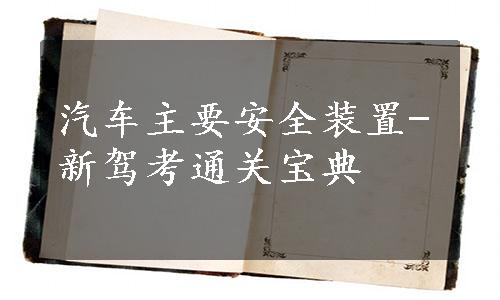 汽车主要安全装置-
新驾考通关宝典